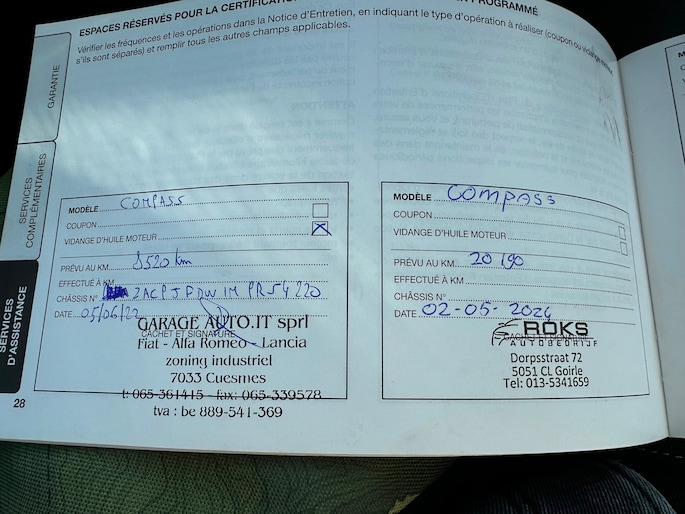 ESPACES RÉSERVÉS POUR LA CERTIFICATION PROGRAMMÉ
Vérifier les fréquences et les opérations dans la Notice d'Entretien, en indiquant le type d'opération à réaliser (coupon ou vidange
s'ils sont séparés) et remplir tous les autres champs applicables.
GARANTIE
SERVICES
COMPLÉMENTAIRES
SERVICES
D'ASSISTANCE
MODÈLE COMPASS
COUPON
VIDANGE D'HUILE MOTEUR
PRÉVU AU KM 8520 km
EFFECTUÉ À KM
CHÂSSIS N°
DATE 05/06/22
CACHET ET SIGNATURE
GARAGE AUTO.IT sprl
Fiat - Alfa Romeo - Lancia
zoning industriel
7033 Cuesmes
t: 065-361415 - fax: 065-339578
tva : be 889-541-369
28
MODÈLE COMPASS
COUPON
VIDANGE D'HUILE MOTEUR
PRÉVU AU KM 20 190
EFFECTUÉ À KM
CHÂSSIS N°
DATE 02-05-2024
ROKS
AUTOBEDRIJF
Dorpsstraat 72
5051 CL Goirle
Tel: 013-5341659